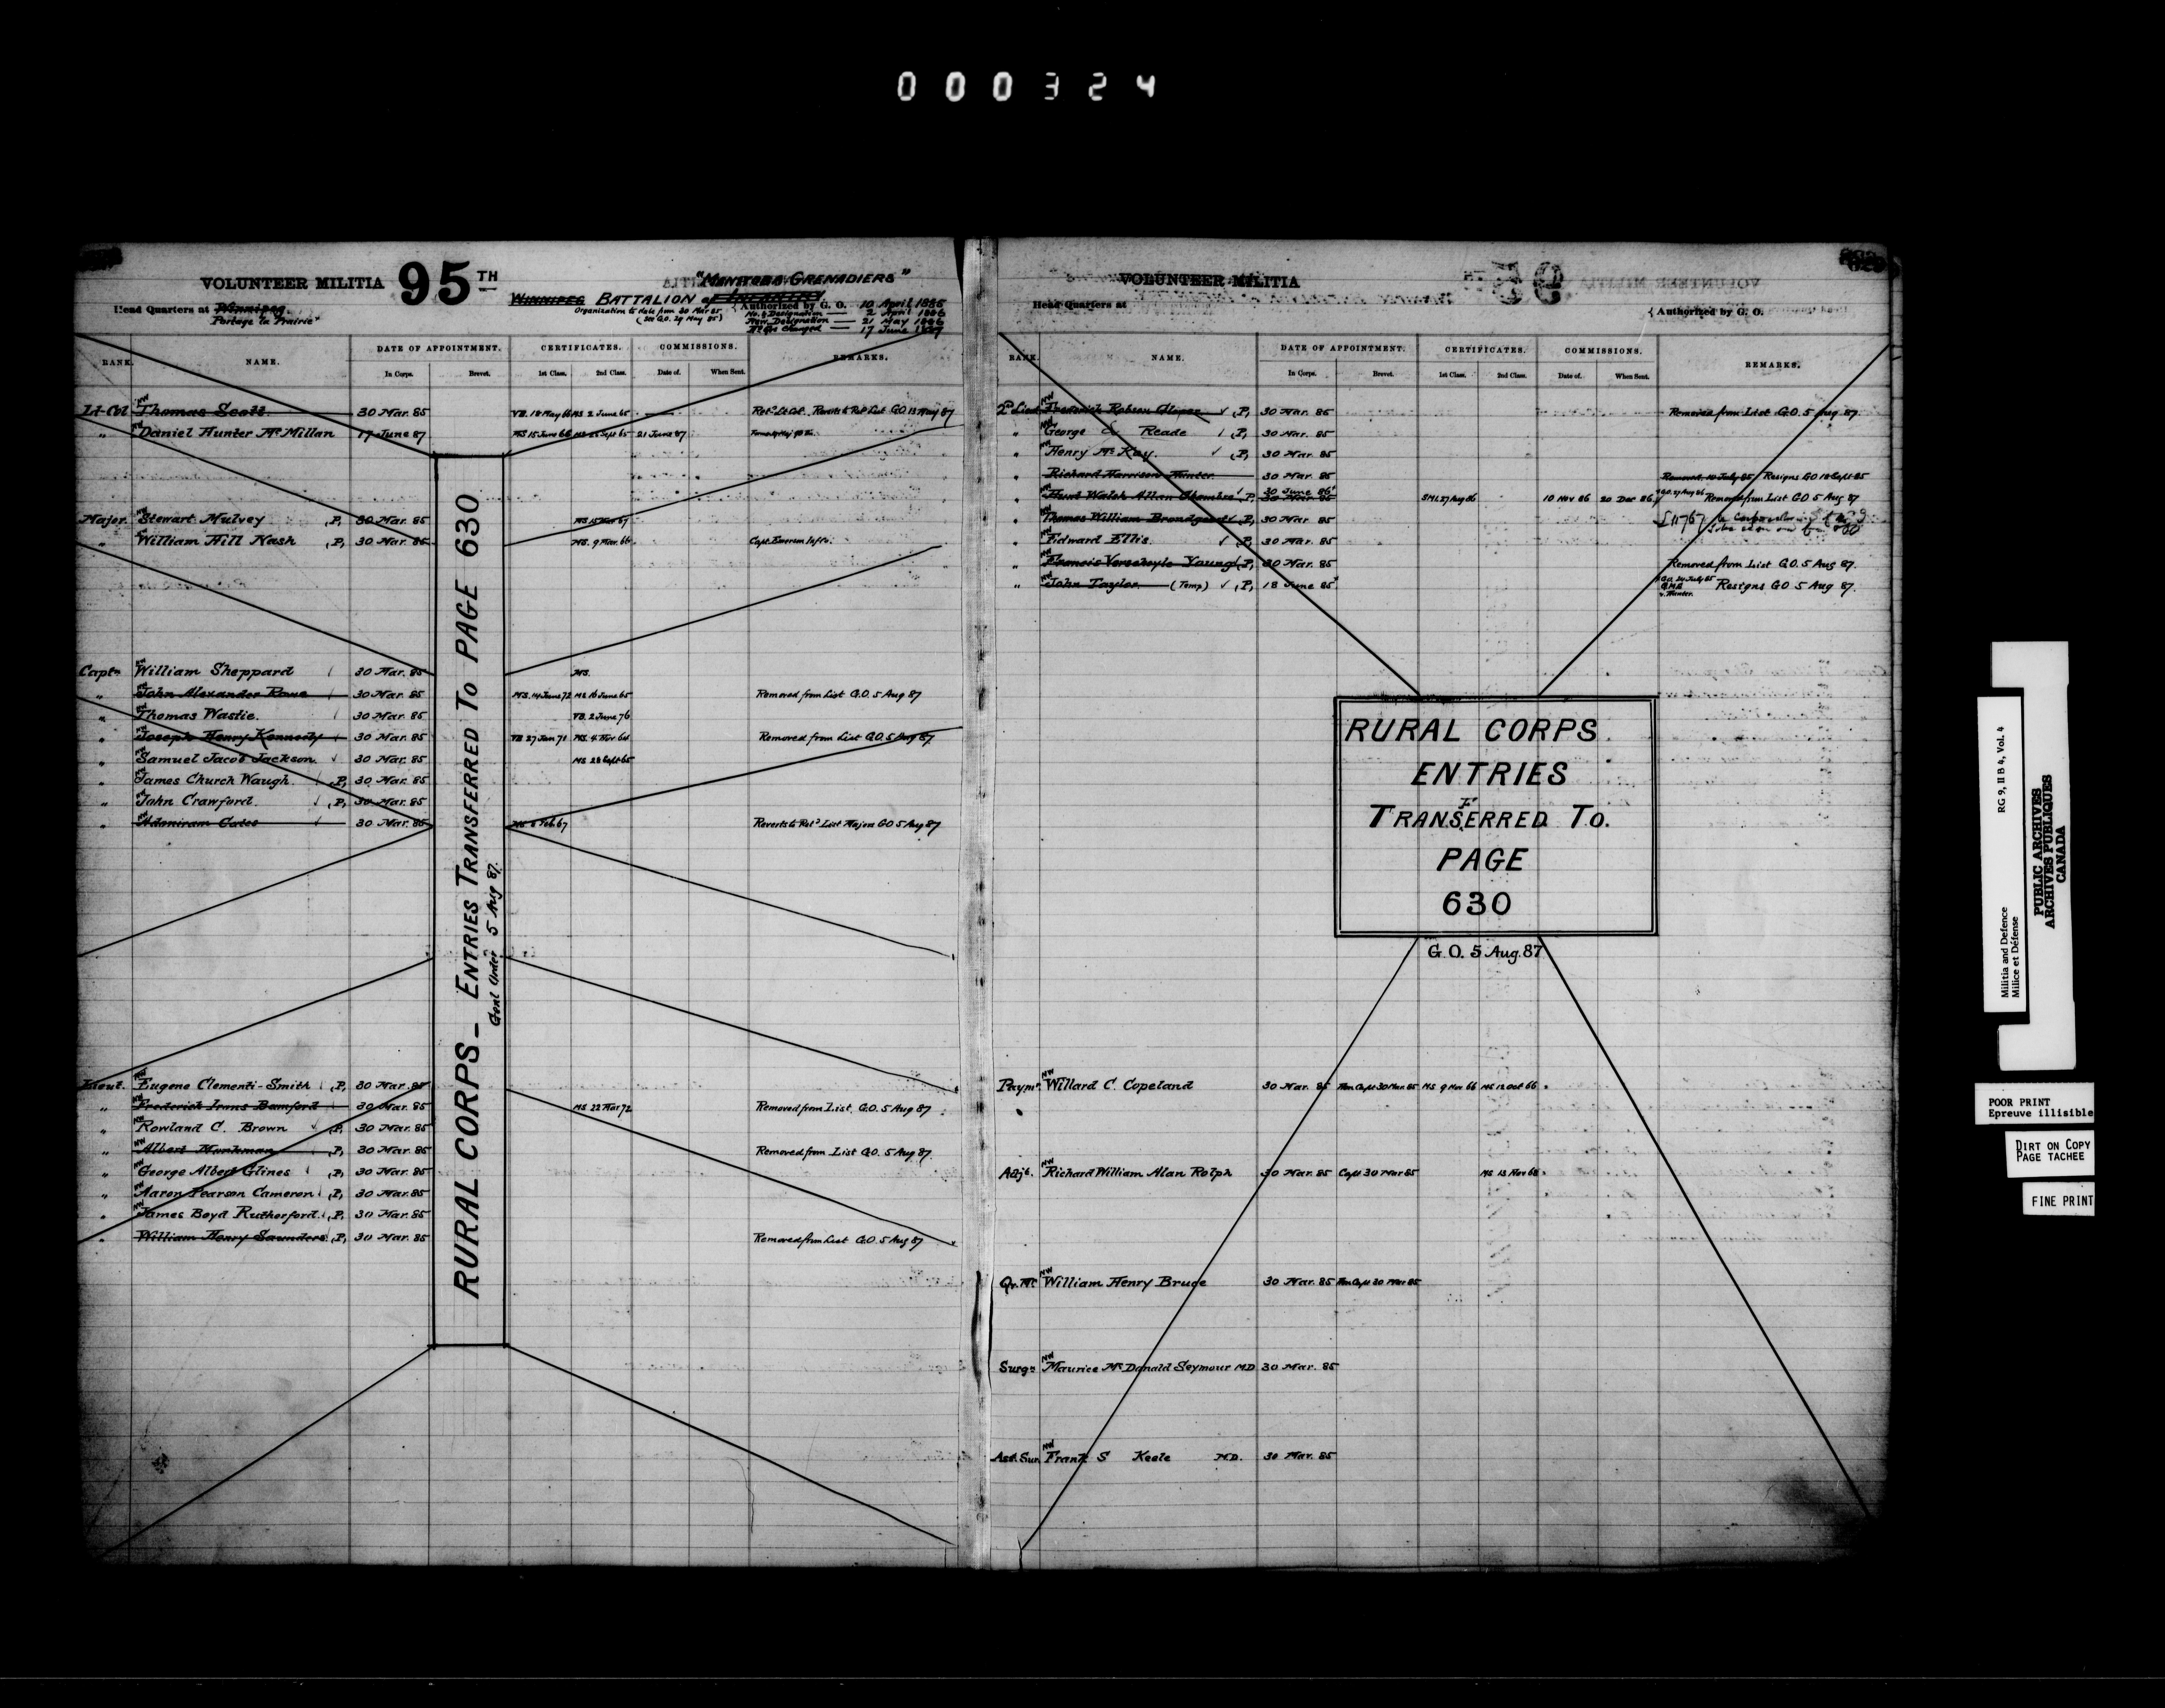 000324
VOLUNTEER MILITIA 95TH "MANITOBA GRENADIERS"
WINNIPEG BATTALION of INFANTRY
Head Quarters at Winnipeg.
Portage la Prairie
Organization to date from 30 Mar 85
(see G.O. 29 May 85)
Authorized by G. O. 10 April 1885
No. & Designation — 2 April 1886
New Designation — 21 May 1886
Hd Qrs Changed — 17 June 1887
RANK. NAME. DATE OF APPOINTMENT. CERTIFICATES. COMMISSIONS. REMARKS.
In Corps. Brevet. 1st Class. 2nd Class. Date of. When Sent.
Lt-Col Thomas Scott 30 Mar. 85 VB. 18 May 66 MS 2 June 65 Retd Lt Col. Reverts to Ret List G.O. 13 May 87
" Daniel Hunter McMillan 17 June 87 MS 15 June 66 21 June 87
Major Stewart Mulvey (P) 30 Mar. 85
" William Hill Nash (P) 30 Mar. 85 MS. 9 Mar. 66
Captn William Sheppard 30 Mar. 85 MS.
" John Alexander Rowe 30 Mar. 85 MS. 14 June 72 MS 16 June 65 Removed from List G.O. 5 Aug 87
" Thomas Wastie. 30 Mar. 85 VB. 2 June 76
" Joseph Henry Kennedy 30 Mar. 85 VB 27 Jan 71 MS. 4 Nov 64 Removed from List G.O. 5 Aug 87.
" Samuel Jacob Jackson 30 Mar. 85 MS 28 Sept 65
" James Church Waugh. (P) 30 Mar. 85
" John Crawford. (P) 30 Mar. 85
" Adoniram Cates 30 Mar. 85 MS 8 Feb 67 Reverts to Retd List Major GO 5 Aug 87
RURAL CORPS — ENTRIES TRANSFERRED To PAGE 630
Genl Order 5 Aug 87.
Lieut. Eugene Clementi-Smith (P) 30 Mar. 85
" Frederick Bamford 30 Mar. 85 MS 22 Mar 72 Removed from List. G.O. 5 Aug 87
" Rowland C. Brown (P) 30 Mar. 85
" Albert Monkman (P) 30 Mar. 85 Removed from List G.O. 5 Aug 87.
" George Albert Glines (P) 30 Mar. 85
" Aaron Pearson Cameron (P) 30 Mar. 85
" James Boyd Rutherford. (P) 30 Mar. 85
" William Henry Saunders (P) 30 Mar. 85 Removed from List G.O. 5 Aug 87
VOLUNTEER MILITIA
Head Quarters at
Authorized by G. O.
RANK. NAME. DATE OF APPOINTMENT. CERTIFICATES. COMMISSIONS. REMARKS.
In Corps. Brevet. 1st Class. 2nd Class. Date of. When Sent.
2d Lieut Frederick Robson Glover (P) 30 Mar. 85 Removed from List G.O. 5 Aug. 87.
" George Reade (P) 30 Mar. 85
" Henry McKay. (P) 30 Mar. 85
" Richard Harrison Hunter 30 Mar. 85 Resigns GO 18 Sept 85
" Walsh Allan (P) 30 June 86 30 Mar 85 SMI 27 Aug 86 10 Nov 86 20 Dec 86 Removed from List G.O 5 Aug 87
" Thomas William Brondgeest (P) 30 Mar. 85
" Edward Ellis. (P) 30 Mar. 85
" Francis Verschoyle Young (P) 30 Mar. 85 Removed from List G.O. 5 Aug 87.
" John Taylor (Temp) (P) 18 June 85 Resigns GO 5 Aug 87.
RURAL CORPS
ENTRIES
TRANSFERRED To.
PAGE
630
G.O. 5 Aug. 87
Paymr Willard C. Copeland 30 Mar. 85 Hon Capt 30 Mar. 85 MS 9 Nov 66 MS 12 Oct 66
Adjt. Richard William Alan Rolph 30 Mar. 85 Capt 30 Mar 85 MS 13 Nov 68
Qr. Mr. William Henry Bruce 30 Mar. 85 Hon Capt 30 Mar 85
Surgn Maurice McDonald Seymour MD 30 Mar. 85
Asst. Sur. Frank S Keele MD. 30 Mar. 85
Militia and Defence RG 9, II B 4, Vol. 4
Milice et Défense
PUBLIC ARCHIVES
ARCHIVES PUBLIQUES
CANADA
POOR PRINT
Epreuve illisible
DIRT ON COPY
PAGE TACHEE
FINE PRINT